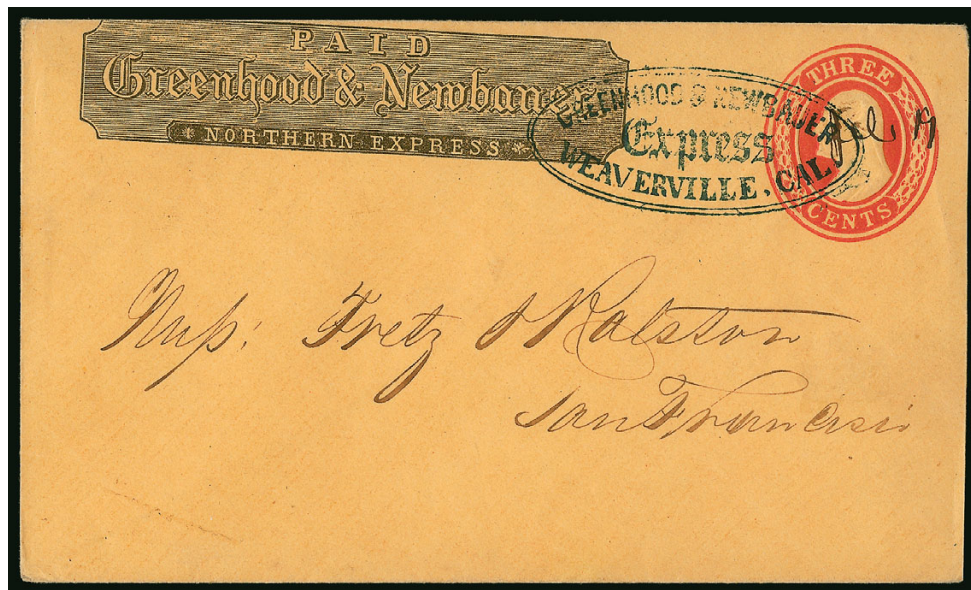 PAID
Greenhood & Newbau
NORTHERN EXPRESS
GREENHOOD & NEWBAUER
Express
WEAVERVILLE, CAL
THREE
CENTS
Fretz & Ralston
San Francisco